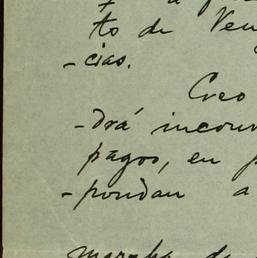 to de Ven
-cias.
Creo
-drá incon
pagos, en p
-pondan a
marcha de